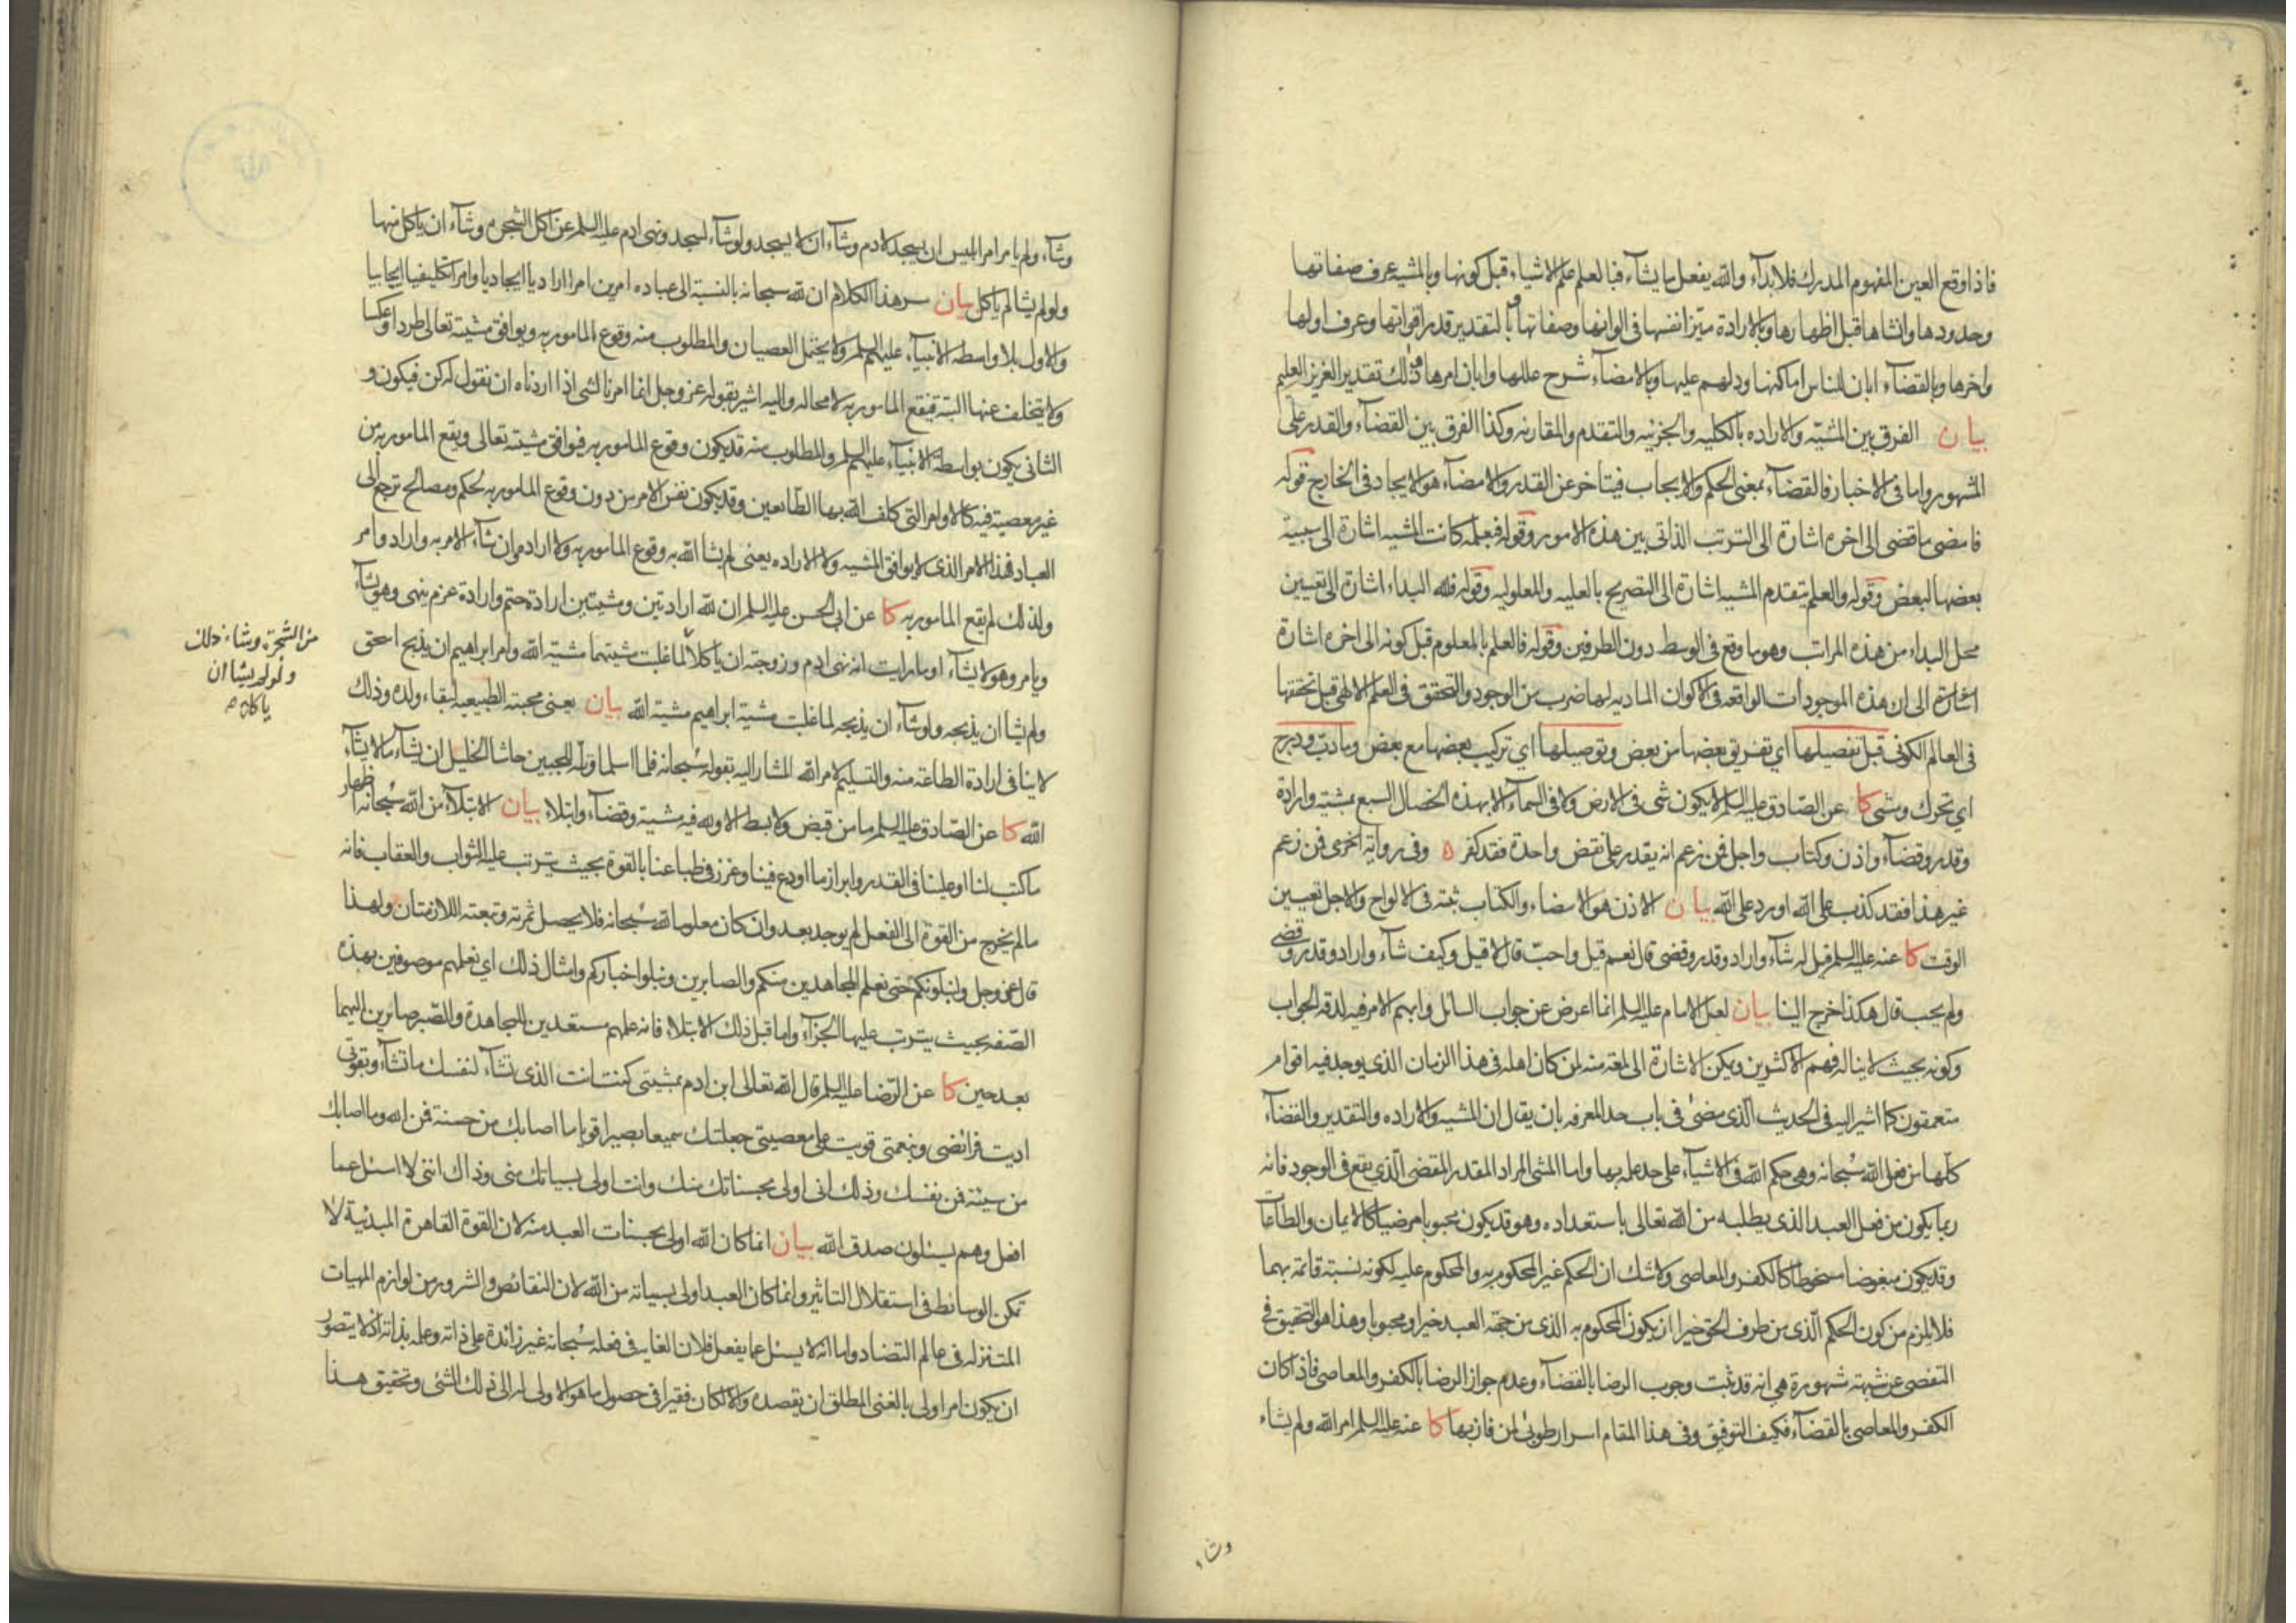 فاذا وقع العين المفهوم المدرك فلا بدآء والله يفعل ما يشآء فبالعلم علم الاشياء قبل كونها وبالمشيه عرف صفاتها
وحدودها وانشاها قبل اظهارها وبالارادة ميّز انفسها فى الوانها وصفاتها وبالتقدير قدر اقواتها وعرف اولها
واخرها وبالقضآء ابان للناس اماكنها ودلهم عليها وبالامضآء شرح عللها وابان امرها وذلك تقدير العزيز العليم
بيان الفرق بين المشيّه والاراده بالكليه والجزئيه والتقدم والمقارنه وكذا الفرق بين القضآء والقدر على
المشهور واما فى الاخبار فالقضآء بمعنى الحكم والايجاب فيتاخر عن القدر والامضآء هو الايجاد فى الخارج قوله
فامضى ما قضى الى اخره اشارة الى الترتب الذاتى بين هذه الامور وقوله فبعلمه كانت المشيه اشارة الى سببية
بعضها لبعض وقوله والعلم يتقدم المشيه اشارة الى التصريح بالعليه والمعلوليه وقوله فلله البداء اشارة الى تعيين
محل البداء من هذه المراتب وهو ما وقع فى الوسط دون الطرفين وقوله فالعلم بالمعلوم قبل كونه الى اخره اشارة
اشارة الى ان هذه الموجودات الواقعه فى الاكوان الماديه لها ضرب من الوجود والتحقق فى العلم الالهى قبل تحققها
فى العالم الكونى قبل تفصيلها اي تفريق بعضها من بعض وتوصيلها اي تركيب بعضها مع بعض وما دبّ ودرج
اي تحرك ومشى كا عن الصّادق عليه السلم لا يكون شى فى الارض ولا فى السمآء الا بهذه الخصال السبع بمشيّة وارادة
وقدر وقضآء واذن وكتاب واجل فمن زعم انه يقدر على نقض واحدة فقد كفر ه وفى رواية اخرى فمن زعم
غير هذا فقد كذب على الله او رد على الله بيان الاذن هو الامضاء والكتاب ثبته فى الالواح والاجل تعيين
الوقت كا عنه عليه السلم قيل له شآء واراد وقدر وقضى قال نعم قيل واحبّ قال لا قيل وكيف شآء واراد وقدر وقضى
ولم يحب قال هكذا خرج الينا بيان لعل الامام عليه السلم انما اعرض عن جواب السائل وابهم الامر فيه لدقه الجواب
وكونه بحيث لا يناله فهم الاكثرين ويمكن الاشارة الى لمعة منه لمن كان اهله فى هذا الزمان الذى يوجد فيه اقوام
متعمقون كما اشير اليه فى الحديث الّذى مضىٰ فى باب حد المعرفه بان يقال ان المشيه والاراده والتقدير والقضآء
كلّها من فعل الله سُبحانه وهى حكم الله فى الاشيآء على حد علمه بها واما المشئ المراد المقدر المقضى الّذى يقع فى الوجود فانه
ربما يكون من فعل العبد الذى يطلبه من الله تعالى باستعداده وهو قد يكون محبوبا مرضيا كالايمان والطاعات
وقد يكون مبغوضا مسخوطا كالكفر والمعاصى ولا شك ان الحكم غير المحكوم به والمحكوم عليه لكونه نسبة قائمه بهما
فلا يلزم من كون الحكم الّذى من طرف الحق خيرا ان يكون المحكوم به الذى من جهة العبد خيرا ومحبوبا وهذا هو التحقيق فى
التفصى عن شبهة مشهورة هى انه قد ثبت وجوب الرضا بالقضآء وعدم جواز الرضا بالكفر والمعاصى فاذا كان
الكفر والمعاصى بالقضآء فكيف التوفيق وفى هذا المقام اسرار طوبىٰ لمن فاز بها كا عنه عليه السلم امر الله ولم يشاء
وشاء
وشآء ولم يامر امر ابليس ان يسجد لادم وشآء ان لا يسجد ولو شآء لسجد ونهى ادم عليه السلم عن اكل الشجره وشآء ان ياكل منها
ولو لم يشا لم ياكل بيان سر هذا الكلام ان لله سبحانه بالنسبة الى عباده امرين امرا اراديا ايجاديا وامرا تكليفيا ايجابيا
والاول بلا واسطه الانبيآء عليهم السلم ولا يحتمل العصيان والمطلوب منه وقوع المامور به ويوافق مشيته تعالى طردا وعكسا
ولا يتخلف عنها البته فيقع المامور به لا محاله واليه اشير بقوله عز وجل انما امرنا لشى اذا اردناه ان نقول له كن فيكون و
الثانى يكون بواسطة الانبيآء عليهم السلم والمطلوب منه قد يكون وقوع المامور به فيوافق مشيته تعالى ويقع المامور به من
غير معصية فيه كالاوامر التى كلف الله بها الطائعين وقد يكون نفس الامر من دون وقوع المامور به لحكم ومصالح ترجع الى
العباد فهذا الامر الذى لا يوافق المشيه ولا الاراده يعنى لم يشا الله به وقوع المامور به ولا اراده وان شآء الامر به واراد وامر
ولذلك لم يقع المامور به كا عن ابى الحسن عليه السلم ان لله ارادتين ومشيتين ارادة حتم وارادة عزم ينهى وهو يشآء
ويامر وهو لا يشآء او ما رايت انه نهى ادم وزوجته ان ياكلا لما غلبت مشيتهما مشية الله وامر ابراهيم ان يذبح اسحق
من الشجرة وشاء ذلك
ولو لم يشا ان
ياكلا
ولم يشا ان يذبحه ولو شآء ان يذبحه لما غلبت مشية ابراهيم مشية الله بيان يعنى محبته الطبيعيه لبقاء ولده وذلك
لا ينافى ارادة الطاعة منه والتسليم لامر الله المشار اليه بقوله سُبحانه فلما اسلما وتلّه للجبين حاشا الخليل ان يشآء ما لا يشآء
الله كا عن الصّادق عليه السلم ما من قبض ولا بسط الا ولله فيه مشية وقضآء وابتلاء بيان الابتلآء من الله سُبحانه اظهار
ما كتب لنا او علينا فى القدر وابراز ما اودع فينا وغرز فى طباعنا بالقوة بحيث يترتب عليه الثواب والعقاب فانه
ما لم يخرج من القوة الى الفعل لم يوجد بعد وان كان معلوما لله سُبحانه فلا يحصل ثمرته وتبعته اللازمتان ولهذا
قال عز وجل ولنبلونكم حتى نعلم المجاهدين منكم والصابرين ونبلوا اخباركم وامثال ذلك اي نعلمهم موصوفين بهذه
الصّفه بحيث يترتب عليها الجزآء واما قبل ذلك الابتلاء فانه علمهم مستعدين للمجاهدة والصّبر صائرين اليهما
بعد حين كا عن الرّضا عليه السلم قال الله تعالى ابن ادم بمشيتى كنت انت الذى تشآء لنفسك ما تشآء وبقوتى
اديت فرائضى وبنعمتى قويت على معصيتى جعلتك سميعا بصيرا قويا ما اصابك من حسنة فمن الله وما اصابك
من سيئة فمن نفسك وذلك انى اولى بحسناتك منك وانت اولى بسياتك منى وذاك اننى لا اسئل عما
افعل وهم يسئلون صدق الله بيان انما كان الله اولى بحسنات العبد منه لان القوة القاهرة المبدئية لا
تمكن الوسائط فى استقلال التاثير وانما كان العبد اولى بسياته من الله لان النقائص والشرور من لوازم المهيات
المتنزله فى عالم التضاد واما انه لا يسئل عما يفعل فلان الغايه فى فعله سُبحانه غير زائدة على ذاته وعلمه بذاته اذ لا يتصور
ان يكون امرا اولى بالغنى المطلق ان يقصده والا لكان فقيرا فى حصول ما هو الاولى له الى ذلك الشئ وتحقيق هذا